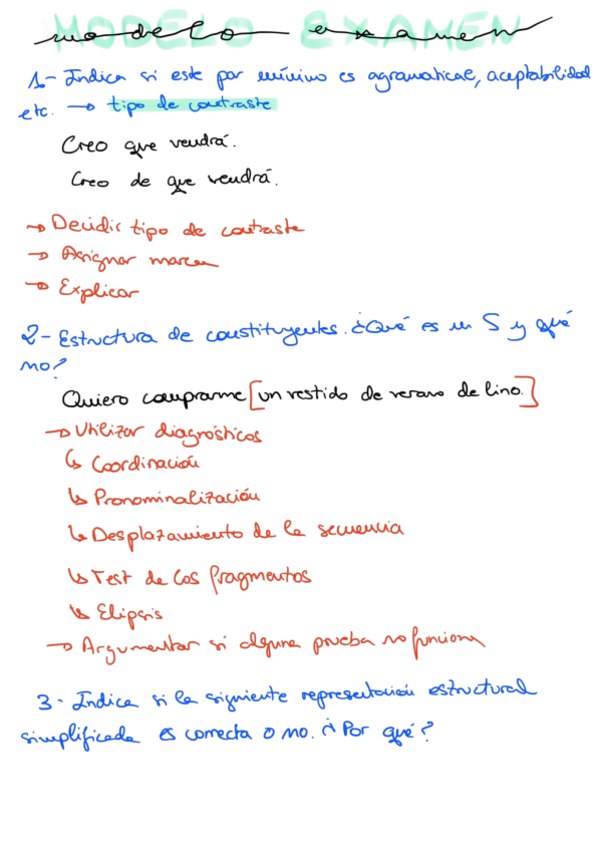 MODELO EXAMEN
modelo examen
1.- Indica si este par mínimo es agramatical, aceptabilidad
etc. → tipo de contraste
Creo que vendrá.
Creo de que vendrá.
→ Decidir tipo de contraste
→ Asignar marca
→ Explicar
2- Estructura de constituyentes. ¿Qué es un S y qué
no?
Quiero comprarme [un vestido de verano de lino.]
→ Utilizar diagnósticos
↳ Coordinación
↳ Pronominalización
↳ Desplazamiento de la secuencia
↳ Test de los fragmentos
↳ Elipsis
→ Argumentar si alguna prueba no funciona
3- Indica si la siguiente representación estructural
simplificada es correcta o no. ¿Por qué?